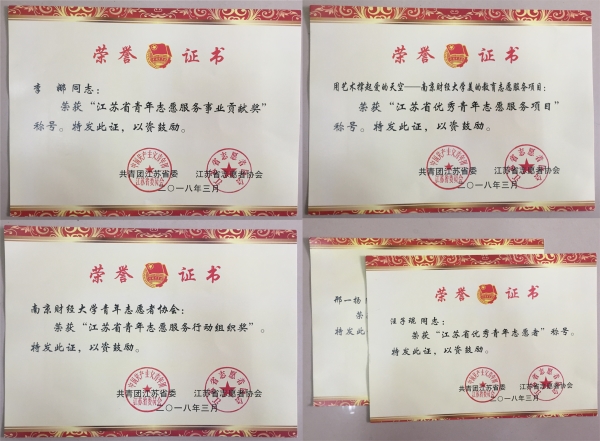 荣誉证书
李娜同志：
荣获“江苏省青年志愿服务事业贡献奖”
称号。特发此证，以资鼓励。
共青团江苏省委 江苏省志愿者协会
二〇一八年三月
荣誉证书
用艺术撑起爱的天空——南京财经大学美的教育志愿服务项目：
荣获“江苏省优秀青年志愿服务项目”
称号。特发此证，以资鼓励。
共青团江苏省委 江苏省志愿者协会
二〇一八年三月
荣誉证书
南京财经大学青年志愿者协会：
荣获“江苏省青年志愿服务行动组织奖”。
特发此证，以资鼓励。
共青团江苏省委 江苏省志愿者协会
二〇一八年三月
荣
一扬
荣
特发此
荣誉证书
同志：
荣获“江苏省优秀青年志愿者”称号。
特发此证，以资鼓励。
共青团江苏省委 江苏省志愿者协会
二〇一八年三月